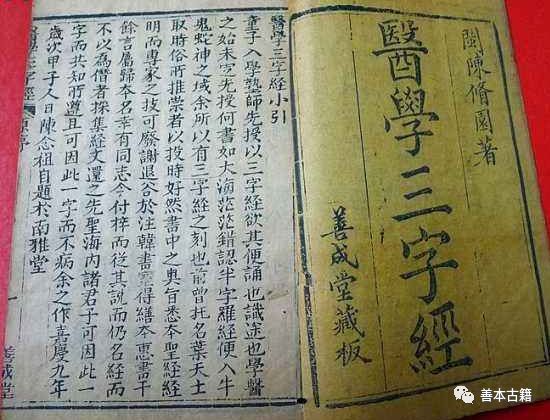 閩陳脩園著
醫學三字經
善成堂藏板
醫學三字經小引
童子入學塾師先授以三字經欲其便誦也識途也學醫
之始未定先授何書如大海茫茫錯認半字羅經便入牛
鬼蛇神之域余所以有三字經之刻也前曾托名葉天士
取時俗所推崇者以投時好然書中之奧旨悉本聖經經
明而專家之技可廢謝退谷於注韓書室得繕本惠書千
餘言屬歸本名幸有同志今付梓而從其說而仍名經而
不以為僭者採集經文還之先聖海內諸君子可因此一
字而共知所遵且可因此一字而不病余之作嘉慶九年
歲次甲子人日陳念祖自題於南雅堂
三字經
善成堂
善本古籍